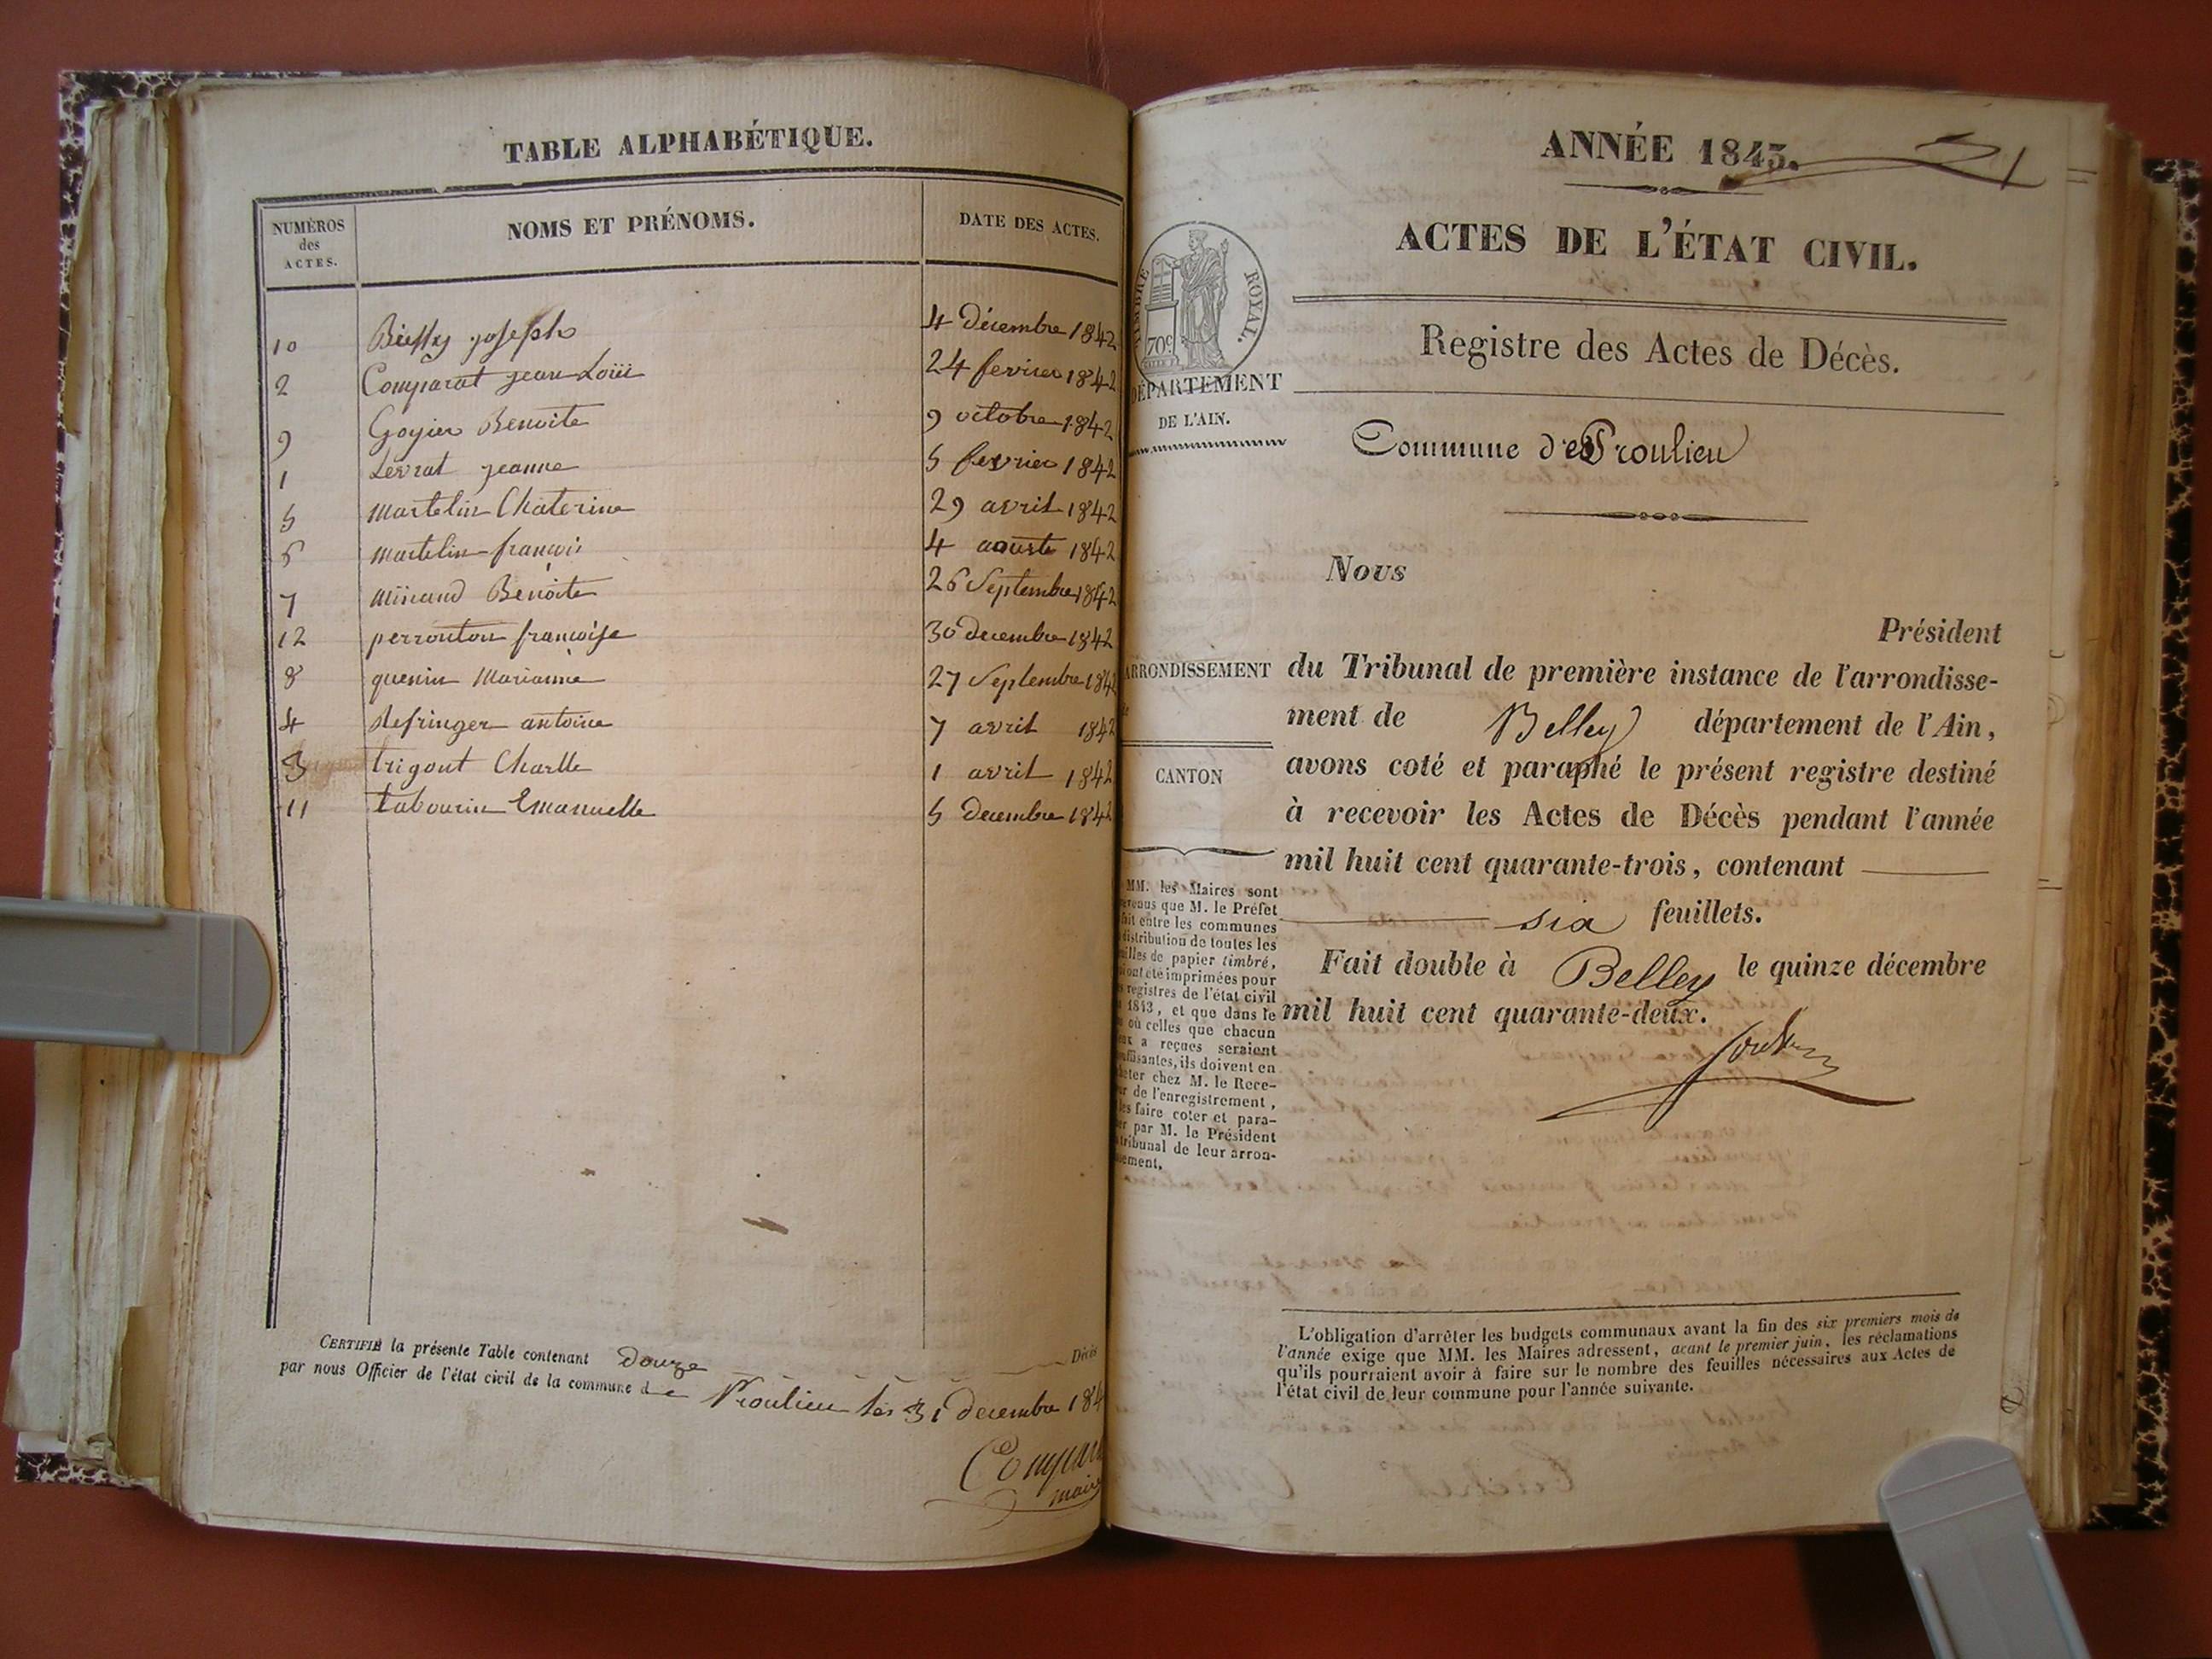 TABLE ALPHABÉTIQUE.
NUMÉROS des ACTES. NOMS ET PRÉNOMS. DATE DES ACTES.
10 joseph 4 Décembre 1842
2 Comparat jean Loüi 24 fevrier 1842
9 Goyier Benoite 9 octobre 1842
1 Levrat jeanne 5 fevrier 1842
5 martelin Chaterine 29 avril 1842
6 martelin françois 4 aouste 1842
7 minand Benoite 26 Septembre 1842
12 perrouton françoise 30 decembre 1842
8 quenin Marianne 27 Septembre 1842
4 Refringer antoine 7 avril 1842
3 trigout Charlle 1 avril 1842
11 tabourin Emanuelle 5 decembre 1842
CERTIFIÉ la présente Table contenant Douze Décès
par nous Officier de l'état civil de la commune de Proulieu les 31 decembre 184
maire
ANNÉE 1843.
ACTES DE L'ÉTAT CIVIL.
TIMBRE ROYAL.
70c
Registre des Actes de Décès.
DÉPARTEMENT
DE L'AIN.
Commune de Proulieu
Nous
Président
ARRONDISSEMENT
du Tribunal de première instance de l'arrondisse-
ment de Belley département de l'Ain,
CANTON
avons coté et paraphé le présent registre destiné
à recevoir les Actes de Décès pendant l'année
mil huit cent quarante-trois, contenant
six feuillets.
Fait double à Belley le quinze décembre
mil huit cent quarante-deux.
MM. les Maires sont
que M. le Préfet
entre les communes
distribution de toutes les
de papier timbré,
ont été imprimées pour
registres de l'état civil
1843, et que dans le
où celles que chacun
a reçues seraient
ils doivent en
chez M. le Rece-
de l'enregistrement,
faire coter et para-
par M. le Président
tribunal de leur arron-
L'obligation d'arrêter les budgets communaux avant la fin des six premiers mois de
l'année exige que MM. les Maires adressent, avant le premier juin, les réclamations
qu'ils pourraient avoir à faire sur le nombre des feuilles nécessaires aux Actes de
l'état civil de leur commune pour l'année suivante.